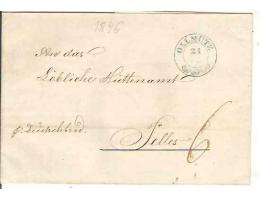 1846
OLLMÜTZ
21
An das
Löbliche Hüttenamt
Selles
6